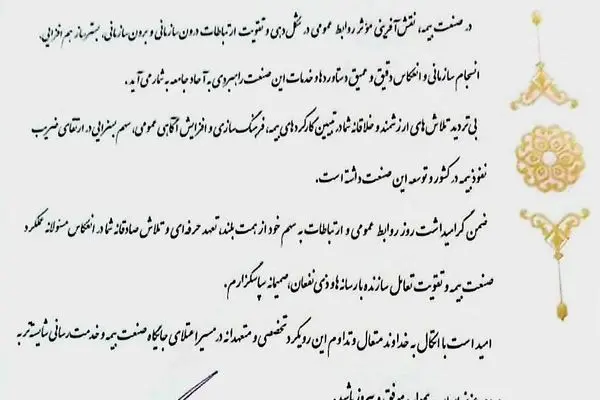 در صنعت بیمه، نقش‌آفرینی مؤثر روابط عمومی در شکل‌دهی و تقویت ارتباطات درون‌سازمانی و برون‌سازمانی، بسترساز هم‌افزایی،
انسجام سازمانی و انعکاس دقیق و عمیق دستاوردها و خدمات این صنعت راهبردی به آحاد جامعه به شمار می‌آید.
بی‌تردید تلاش‌های ارزشمند و خلاقانه شما در تبیین کارکردهای بیمه، فرهنگ‌سازی و افزایش آگاهی عمومی، سهم بسزایی در ارتقای ضریب
نفوذ بیمه در کشور و توسعه این صنعت داشته است.
ضمن گرامیداشت روز روابط عمومی و ارتباطات به سهم خود از همت بلند، تعهد حرفه‌ای و تلاش صادقانه شما در انعکاس مسئولانه عملکرد
صنعت بیمه و تقویت تعامل سازنده با رسانه‌ها و ذی‌نفعان، صمیمانه سپاسگزارم.
امید است با اتکال به خداوند متعال و تداوم این رویکرد تخصصی و متعهدانه در مسیر اعتلای جایگاه صنعت بیمه و خدمت‌رسانی شایسته‌تر به
موفق و پیروز باشید.